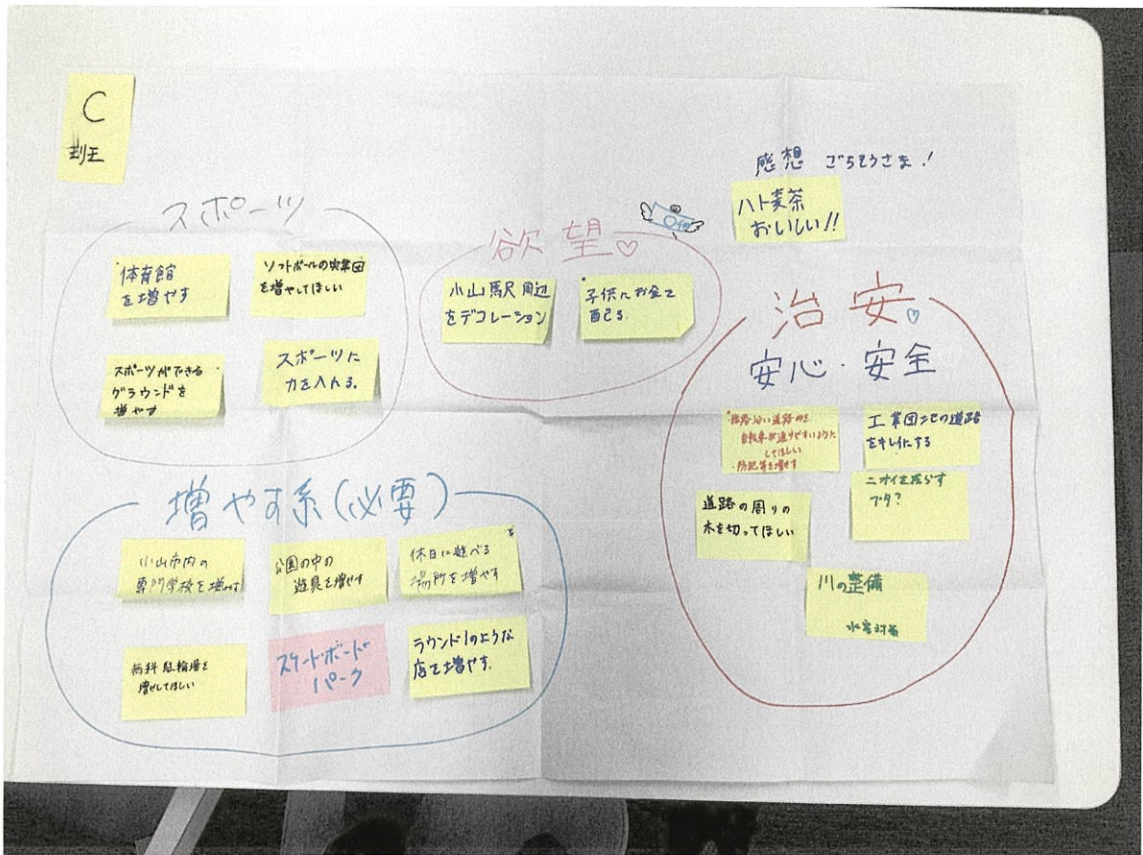 C
班
感想 ごちそうさま!
ハト麦茶
おいしい!!
スポーツ
体育館
を増やす
ソフトボールの実業団
を増やしてほしい
スポーツができる
グラウンドを
増やす
スポーツに
力を入れる。
欲望♡
小山駅周辺
をデコレーション
子供にお金を
配る
治安♡
安心・安全
自転車が通りやすいように
してほしい
・防犯等を増やす
工業団地の道路
をキレイにする
道路の周りの
木を切ってほしい
ニオイを減らす
ブタ?
川の整備
水害対策
増やす系(必要)
小山市内の
専門学校を増やす
公園の中の
遊具を増やす
休日に遊べる
場所を増やす
無料駐輪場を
増やしてほしい
スケートボード
パーク
ラウンド1のような
店を増やす。